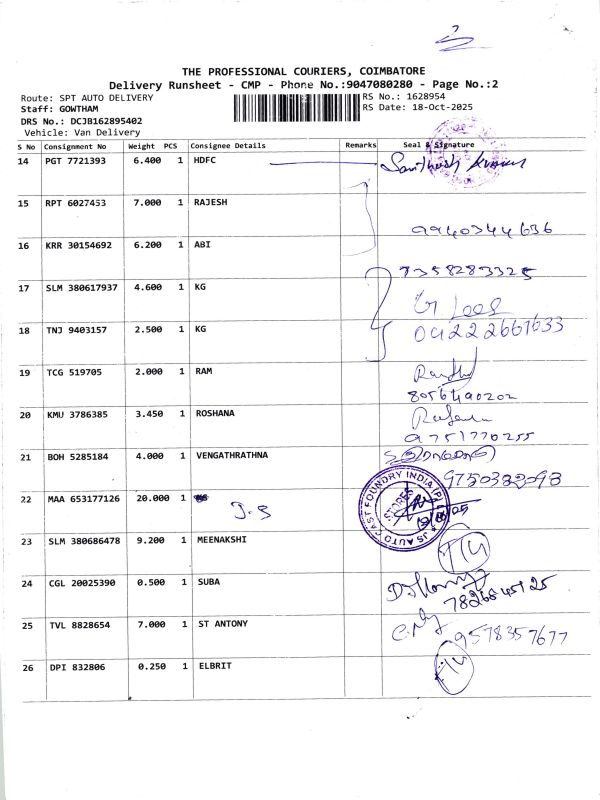 THE PROFESSIONAL COURIERS, COIMBATORE
Delivery Runsheet - CMP - Phone No.:9047080280 - Page No.:2
Route: SPT AUTO DELIVERY RS No.: 1628954
Staff: GOWTHAM RS Date: 18-Oct-2025
DRS No.: DCJB162895402
Vehicle: Van Delivery
S No Consignment No Weight PCS Consignee Details Remarks Seal & Signature
14 PGT 7721393 6.400 1 HDFC
15 RPT 6027453 7.000 1 RAJESH
9940344636
16 KRR 30154692 6.200 1 ABI
7358283325
17 SLM 380617937 4.600 1 KG
18 TNJ 9403157 2.500 1 KG 04222661633
19 TCG 519705 2.000 1 RAM
8056490202
20 KMU 3786385 3.450 1 ROSHANA
9751770255
21 BOH 5285184 4.000 1 VENGATHRATHNA
9750382098
22 MAA 653177126 20.000 1 J.S
JS AUTO CAST FOUNDRY INDIA (P)
STORES
23 SLM 380686478 9.200 1 MEENAKSHI
24 CGL 20025390 0.500 1 SUBA
7826845125
25 TVL 8828654 7.000 1 ST ANTONY
9578357677
26 DPI 832806 0.250 1 ELBRIT